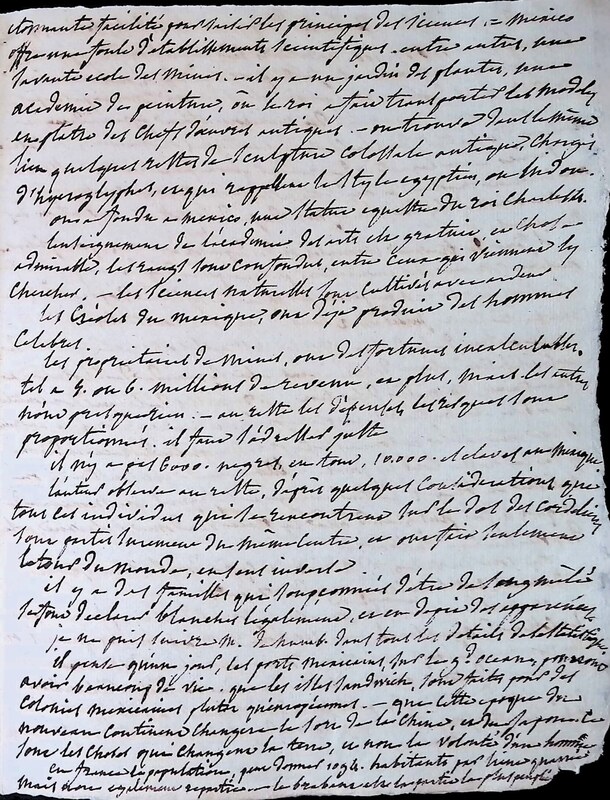 étonnante facilité pour saisir les principes des sciences. = mexico
offre une foule d'établissements scientifiques. entre autres, une
savante école des mines. - il y a un jardin des plantes, une
académie de peinture, où le roi a fait transporter les modeles
en platre des chefs d'œuvres antiques. - on trouve dans le même
lieu quelques restes de sculpture colossale antique, chargés
d'hyeroglyphes, et qui rappellent le style egyptien, ou indou.
on a fondu a mexico, une statue equestre du roi Charles
l'enseignement de l'académie des arts est gratuit, et chose
admirable, les rangs sont confondus, entre ceux qui viennent les
chercher. - les sciences naturelles sont cultivées avec ardeur
les Créoles du mexique, ont deja produit des hommes
celebres.
les proprietaires de mines, ont des fortunes incalculables.
tel a 5. ou 6. millions de revenu, et plus, mais les autres
n'ont presque rien. - au reste les dépenses, les risques sont
proportionnés. il faut l'adresse
il n'y a pas 6000. negres, en tout, 10.000. esclaves au mexique
l'auteur observe au reste, d'après quelques considérations, que
tous ces individus qui se rencontrent sur le dos des cordelieres
sont partis surement du même centre, et ont fait seulement
le tour du monde, en sens inverse
il y a des familles qui soupçonnées d'etre de sang mêlé
se font declarer blanches légalement, et en depit des apparences
je ne puis suivre M. de humb. dans tous les details de la statistique.
il pense qu'un jour, les ports mexicains, sur le gd. ocean, pourront
avoir beaucoup de vie. que les isles sandwich, sont faites pour des
colonies mexicaines plutot qu'européennes. - que cette epoque du
nouveau continent changera le sort de la chine, et du japon. ce
sont les choses qui changent la terre, et non la volonté d'un homme
en france la population, peut donner 1094. habitants par lieue quarrée
mais non egalement repartie. - le brabant est la partie la plus peuplée